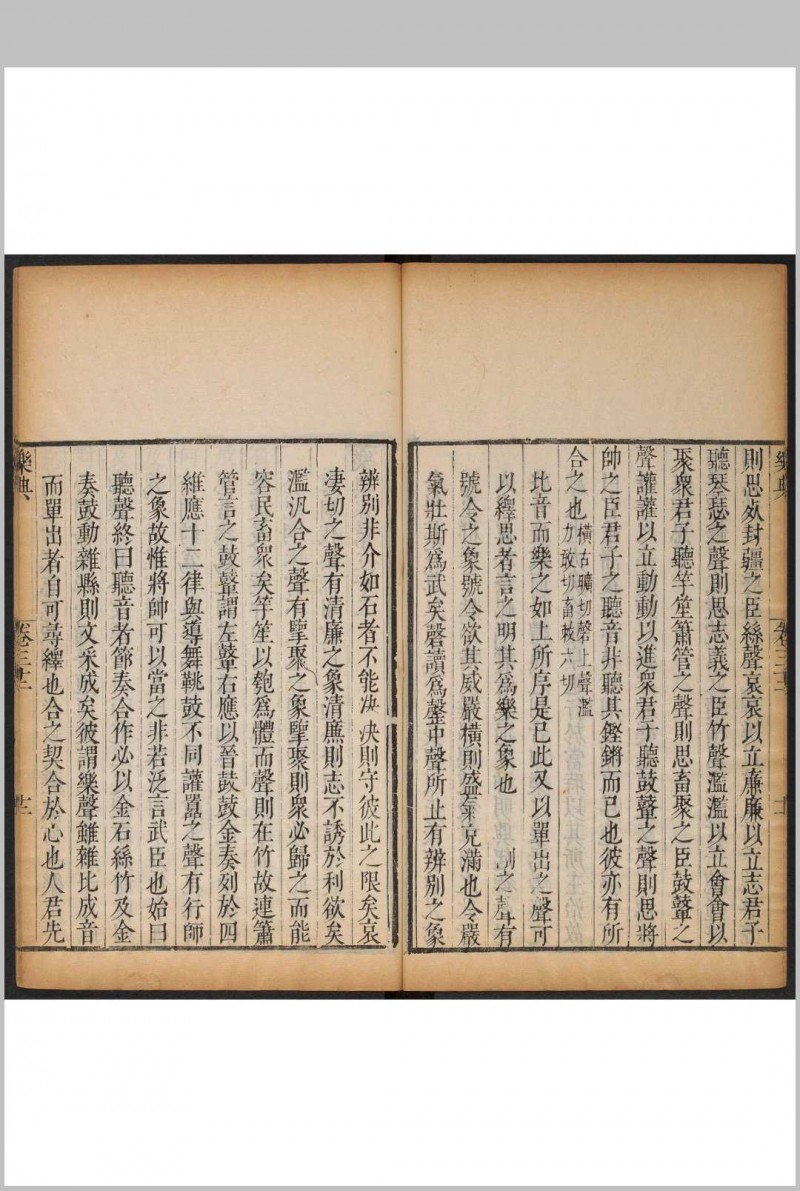 則思死封疆之臣絲聲哀哀以立廉廉以立志君子
聽琴瑟之聲則思志義之臣竹聲濫濫以立會會以
聚衆君子聽竽笙簫管之聲則思畜聚之臣鼓鼙之
聲讙讙以立動動以進衆君子聽鼓鼙之聲則思將
帥之臣君子之聽音非聽其鏗鏘而已也彼亦有所
合之也橫古曠切磬上聲濫
力敢切畜敕六切
比音而樂之如上所序是已此又以單出之聲可
以繹思者言之明其爲樂之象也 之聲有
號令之象號令欲其威嚴橫則盛氣充滿也令嚴
氣壯斯爲武矣磬讀爲罄中聲所止有辨別之象
辨別非介如石者不能 決則守彼此之限矣哀
凄切之聲有清廉之象清廉則志不誘於利欲矣
濫汎合之聲有擥聚之象擥聚則衆必歸之而能
容民畜衆矣竽笙以匏爲體而聲則在竹故連簫
管言之鼓鼙謂左鼙右應以晉鼓鼓金奏列於四
維應十二律與導舞鞉鼓不同讙囂之聲有行師
之象故惟將帥可以當之非若泛言武臣也始曰
聽聲終曰聽音者節奏合作必以金石絲竹及金
奏鼓動雜縣則文采成矣彼謂樂聲雖雜比成音
而單出者自可尋繹也合之契合於心也人君先
樂典
卷三十二